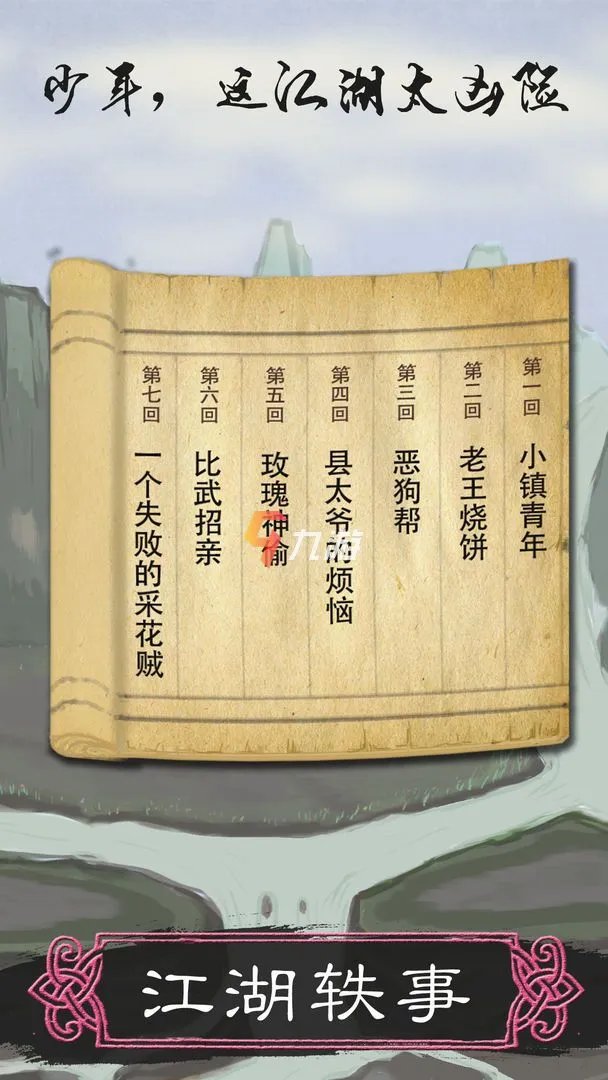 少年，这江湖太凶险
第一回
小镇青年
第二回
老王烧饼
第三回
恶狗帮
第四回
县太爷的烦恼
第五回
玫瑰神偷
第六回
比武招亲
第七回
一个失败的采花贼
九游
江湖轶事